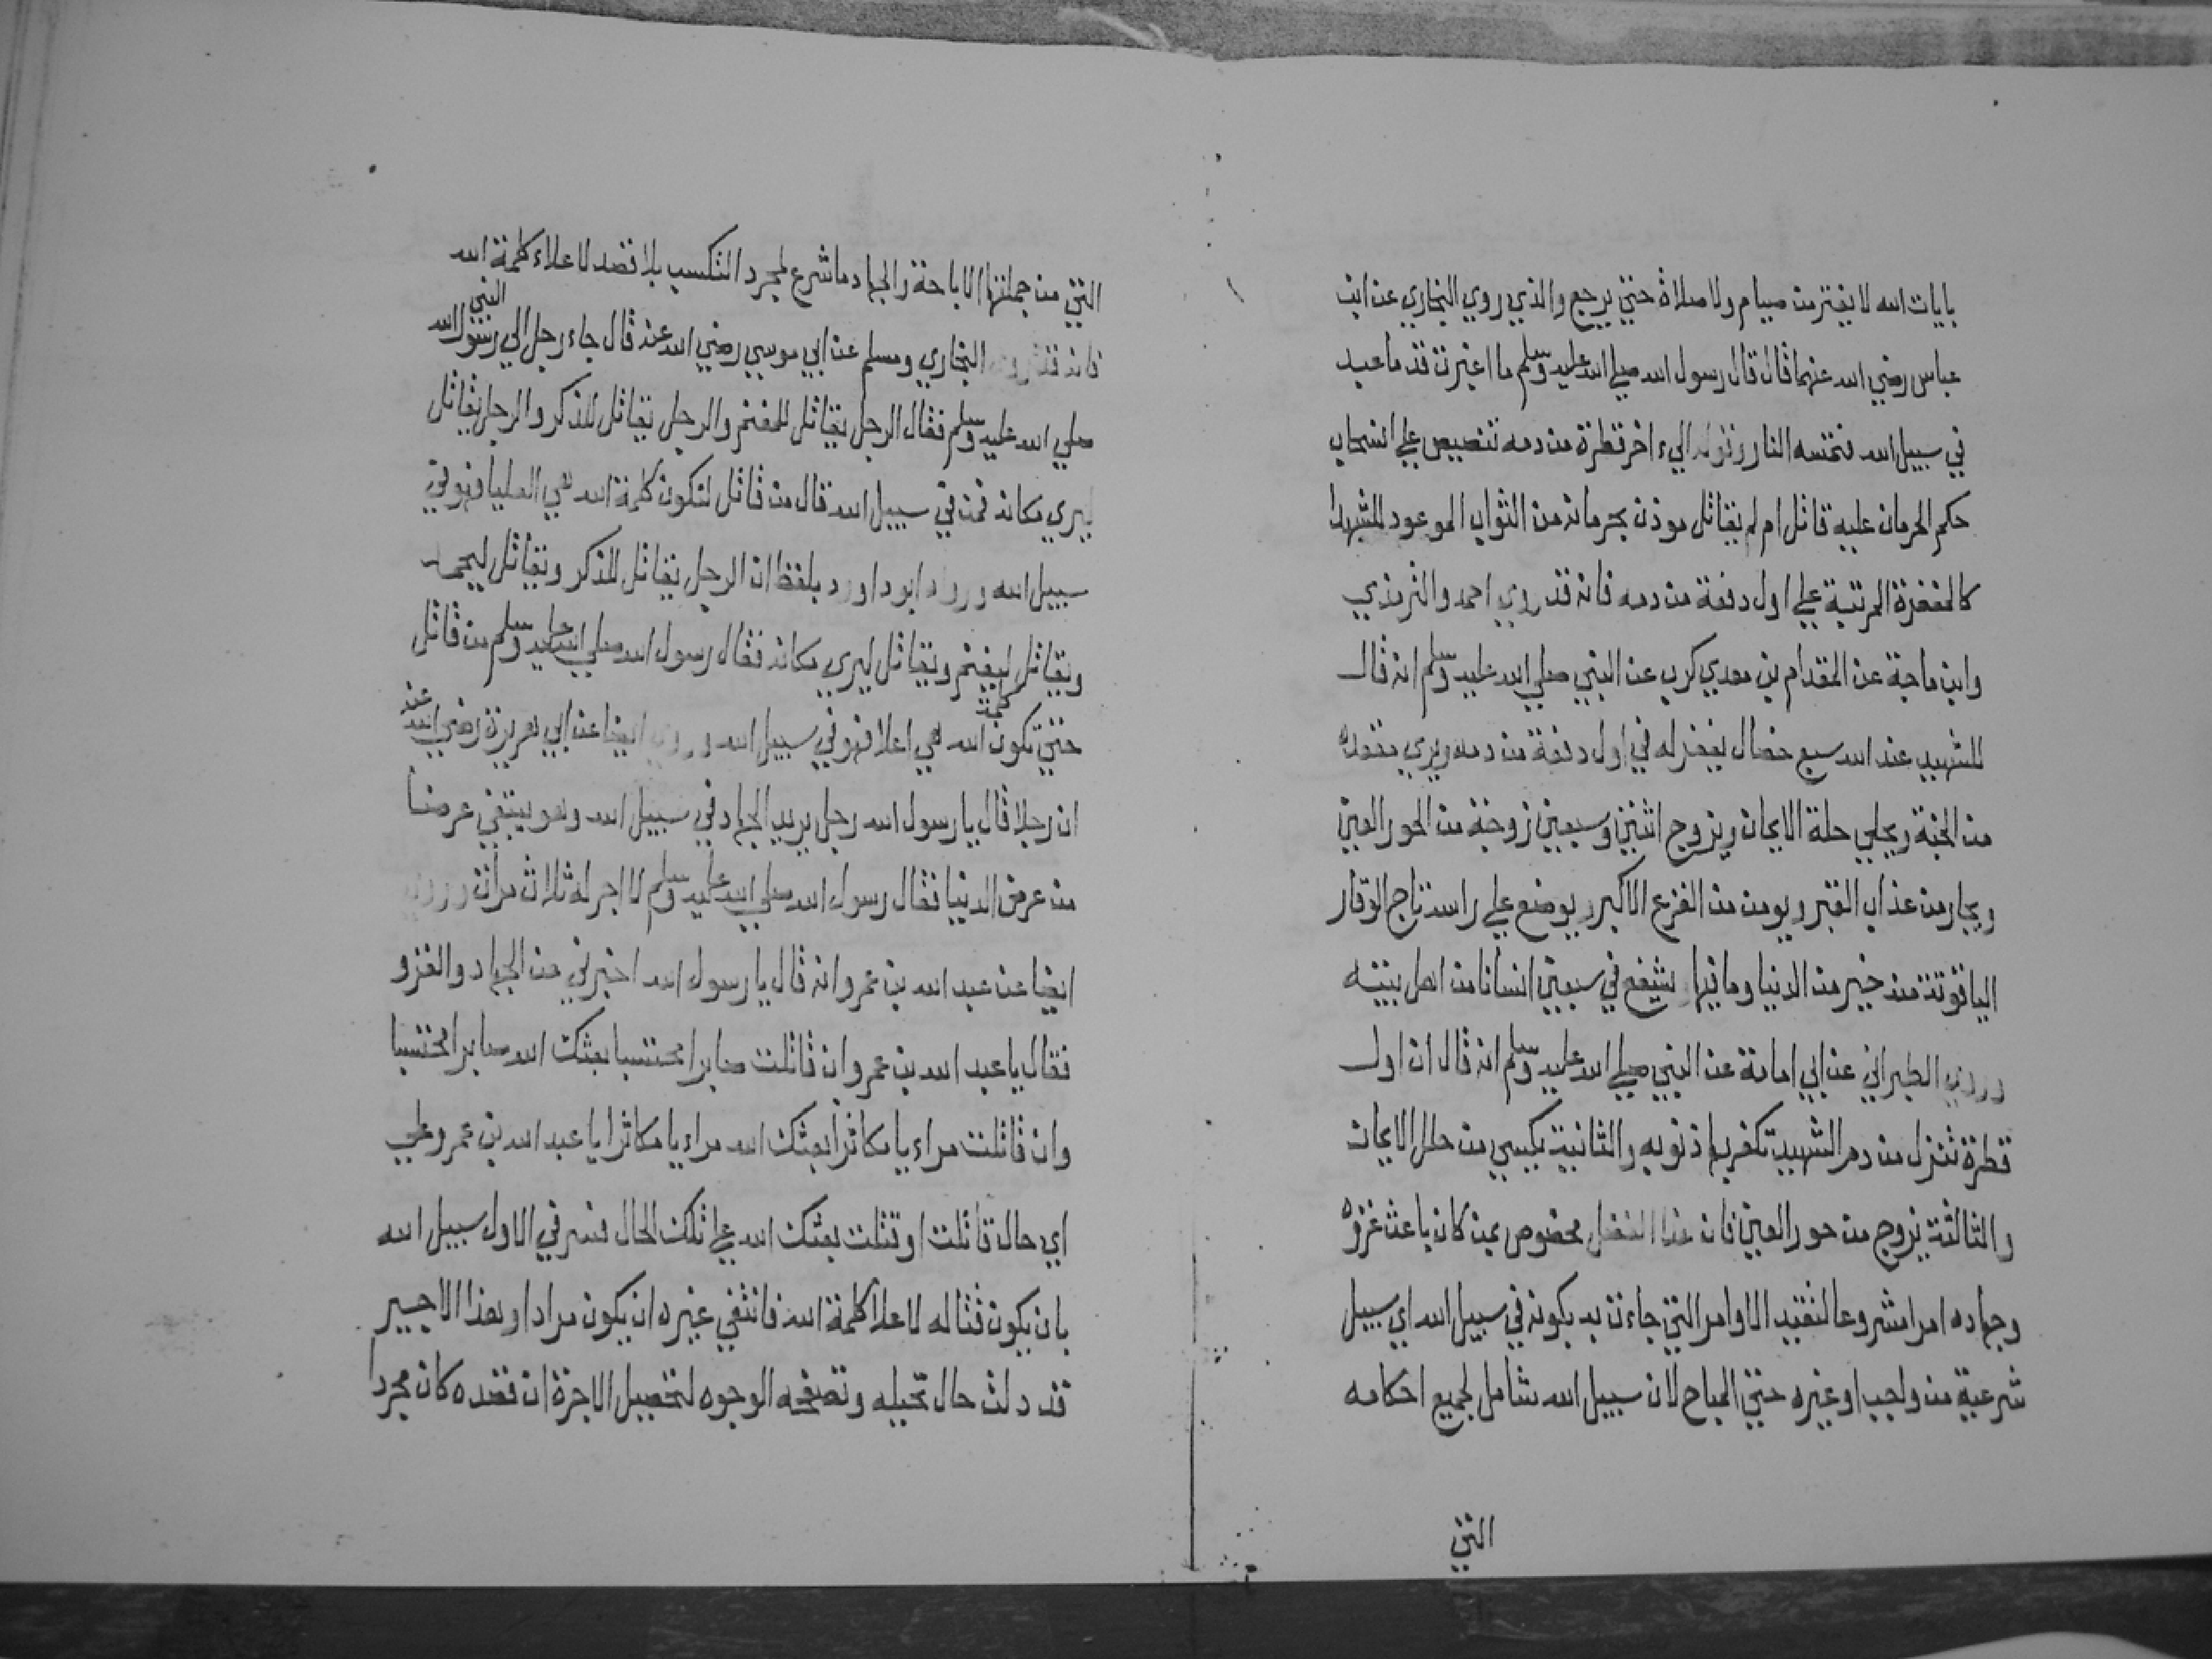 بايات الله لا يفتر من صيام ولا صلاة حتي يرجع والذي روي البخاري عن ابن
عباس رضي الله عنهما قال قال رسول الله صلي الله عليه وسلم ما اغبرت قدما عبد
في سبيل الله فتمسه النار وقوله الي اخر قطرة من دمه تنصيص علي انسحاب
حكم الحرمان عليه قاتل ام لم يقاتل موذن بحرمانه من الثواب الموعود للشهدا
كالمغفرة المرتبة علي اول دفعة من دمه فانه قد روي احمد والترمذي
وابن ماجة عن المقدام بن معدي كرب عن النبي صلي الله عليه وسلم انه قال
للشهيد عند الله سبع خصال يغفر له في اول دفعة من دمه ويري مقعده
من الجنة ويحلي حلة الايمان ويزوج اثنين وسبعين زوجة من الحور العين
ويجار من عذاب القبر ويومن من الفزع الاكبر ويوضع علي راسه تاج الوقار
الياقوتة منه خير من الدنيا وما فيها ويشفع في سبعين انسانا من اهل بيته
وروي الطبراني عن ابي امامة عن النبي صلي الله عليه وسلم انه قال ان اول
قطرة تنزل من دم الشهيد تكفر بها ذنوبه والثانية يكسي من حلل الايمان
والثالثة يزوج من حور العين فان هذا الفضل مخصوص بمن كان باعث غزوه
وجهاده امرا مشروعا لتقيد الاوامر التي جاءت به بكونه في سبيل الله اي سبيل
شرعية من واجب او غيره حتي المباح لان سبيل الله شامل لجميع احكامه
التي
التي من جملتها الاباحة والجهاد ما شرع لمجرد التكسب بلا قصد لاعلاء كلمة الله
النبي
فانه قد روي البخاري ومسلم عن ابي موسي رضي الله عنه قال جاء رجل الي رسول الله
صلي الله عليه وسلم فقال الرجل يقاتل للمغنم والرجل يقاتل للذكر والرجل يقاتل
ليري مكانه فمن في سبيل الله قال من قاتل لتكون كلمة الله هي العليا فهو في
سبيل الله ورواه ابو داود بلفظ ان الرجل يقاتل للذكر ويقاتل ليحمد
ويقاتل ليغنم ويقاتل ليري مكانه فقال رسول الله صلي الله عليه وسلم من قاتل
حتي تكون كلمة الله هي اعلا فهو في سبيل الله وروي ايضا عن ابي هريرة رضي الله عنه
ان رجلا قال يا رسول الله رجل يريد الجهاد في سبيل الله وهو يبتغي عرضا
من عرض الدنيا فقال رسول الله صلي الله عليه وسلم لا اجر له ثلاث مرات وروي
ايضا عن عبد الله بن عمرو انه قال يا رسول الله اخبرني عن الجهاد والغزو
فقال يا عبد الله بن عمرو ان قاتلت صابرا محتسبا بعثك الله صابرا محتسبا
وان قاتلت مراءيا مكاثرا بعثك الله مراءيا مكاثرا يا عبد الله بن عمرو علي
اي حال قاتلت او قتلت بعثك الله علي تلك الحال فسر في الاول سبيل الله
بان يكون قتاله لاعلا كلمة الله فانتفي غيره ان يكون مرادا وهذا الاجير
قد دلت حال تحيله وتصفحه الوجوه لتحصيل الاجرة ان قصده كان مجرد